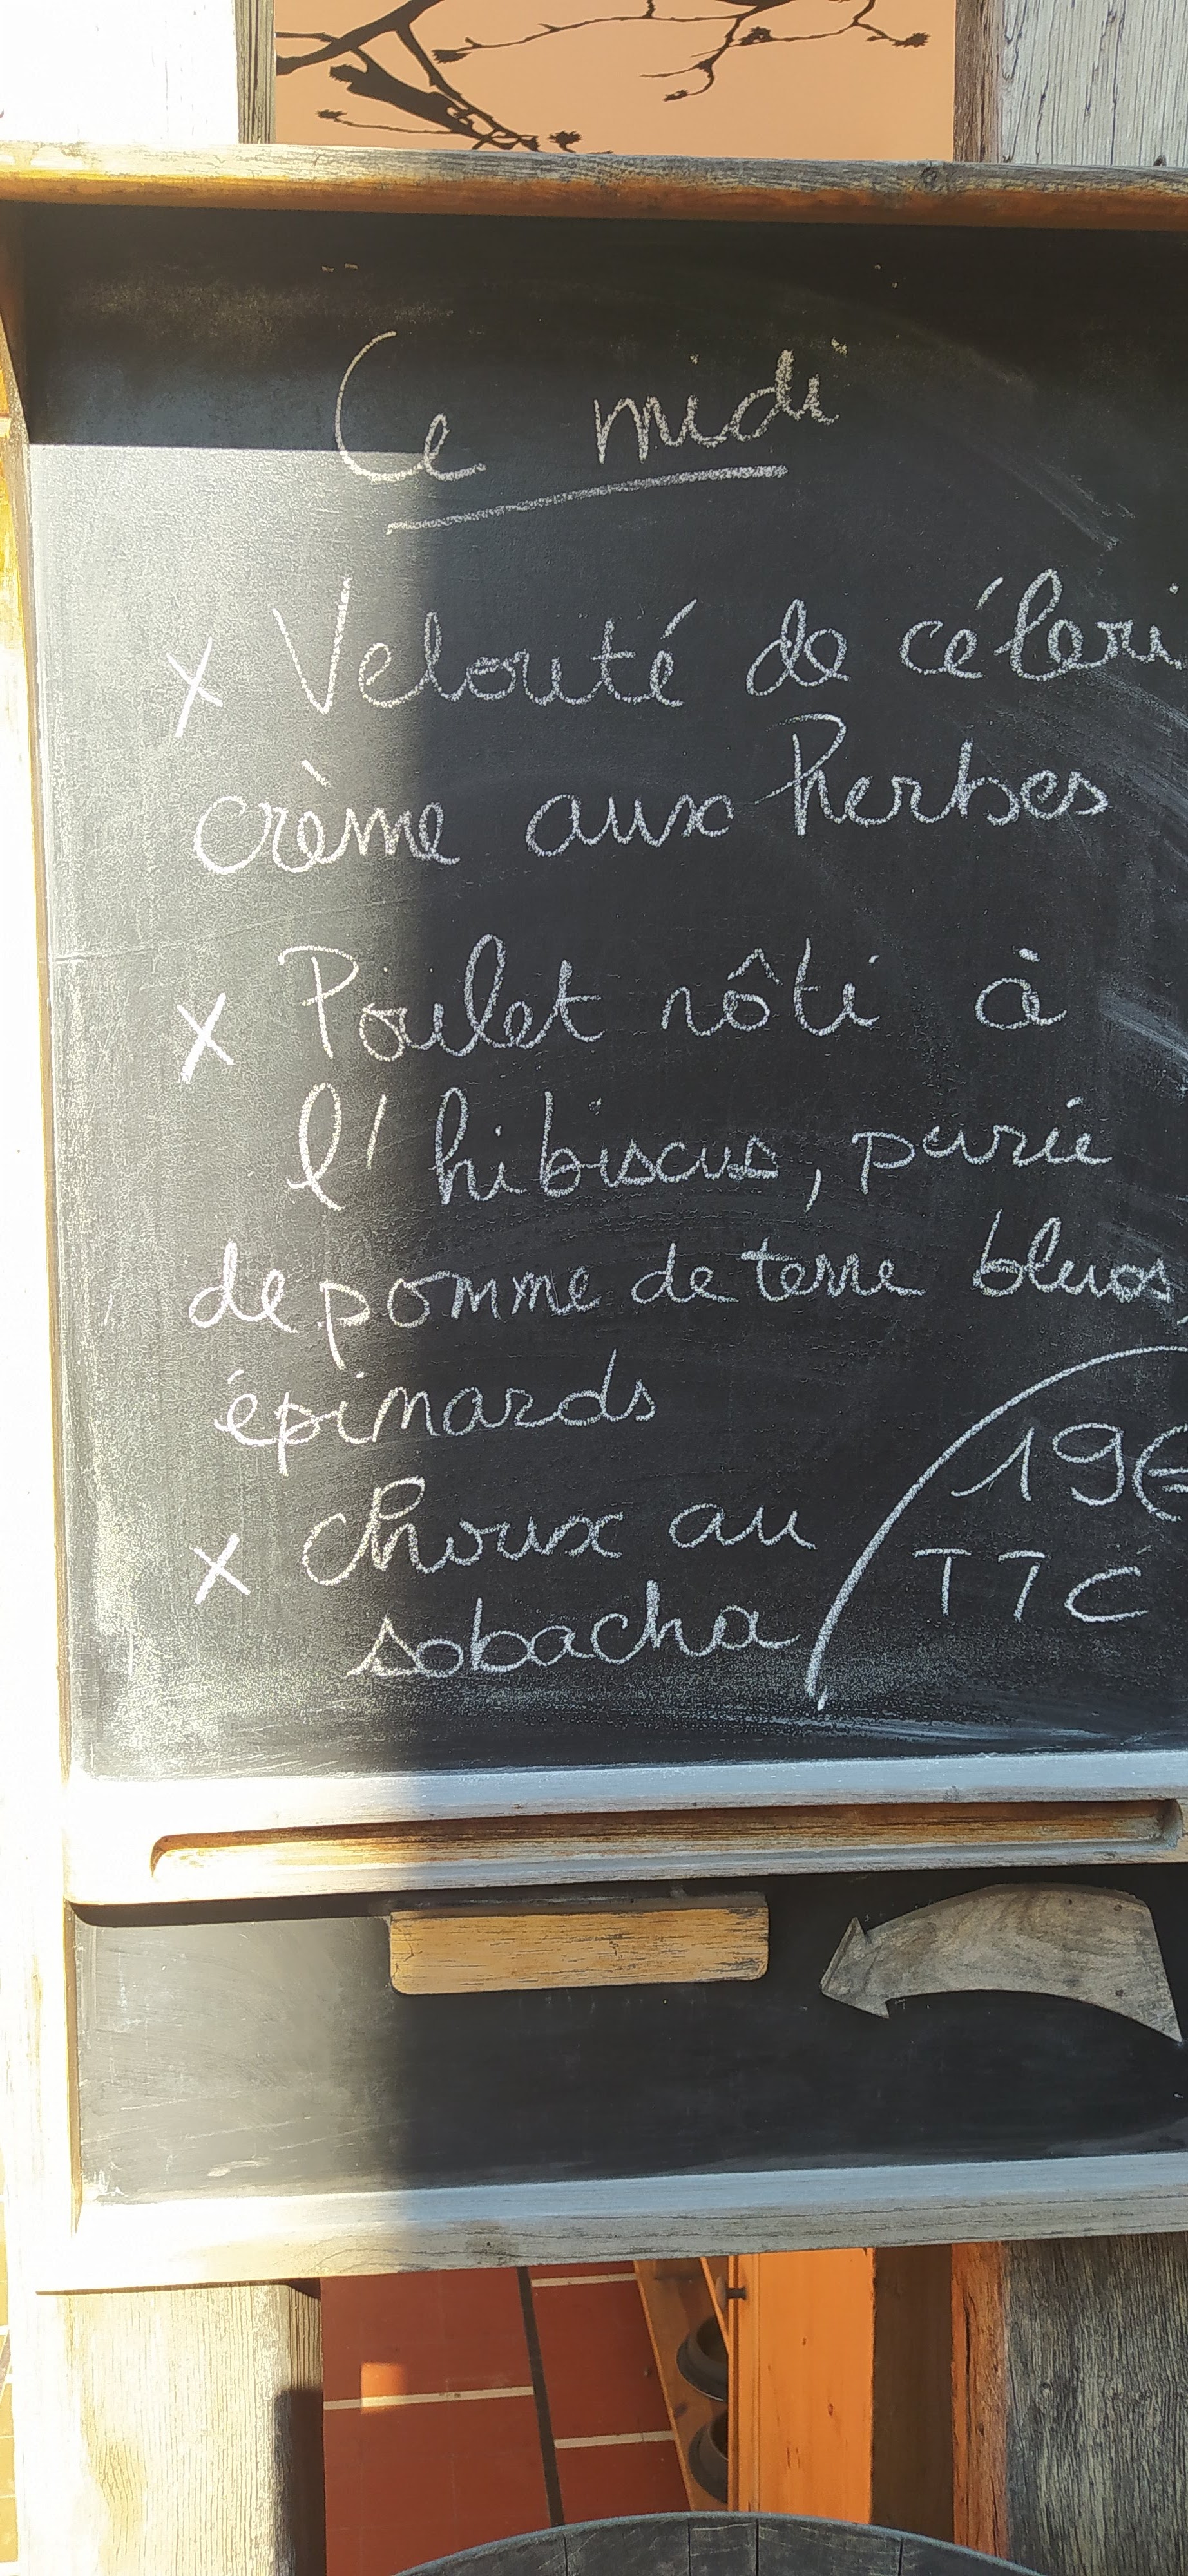 Ce midi
x Velouté de céleri
crème aux herbes
x Poulet rôti à
l'hibiscus, purée
de pomme de terre bleues,
épinards
x choux au
sobacha
19€
TTC